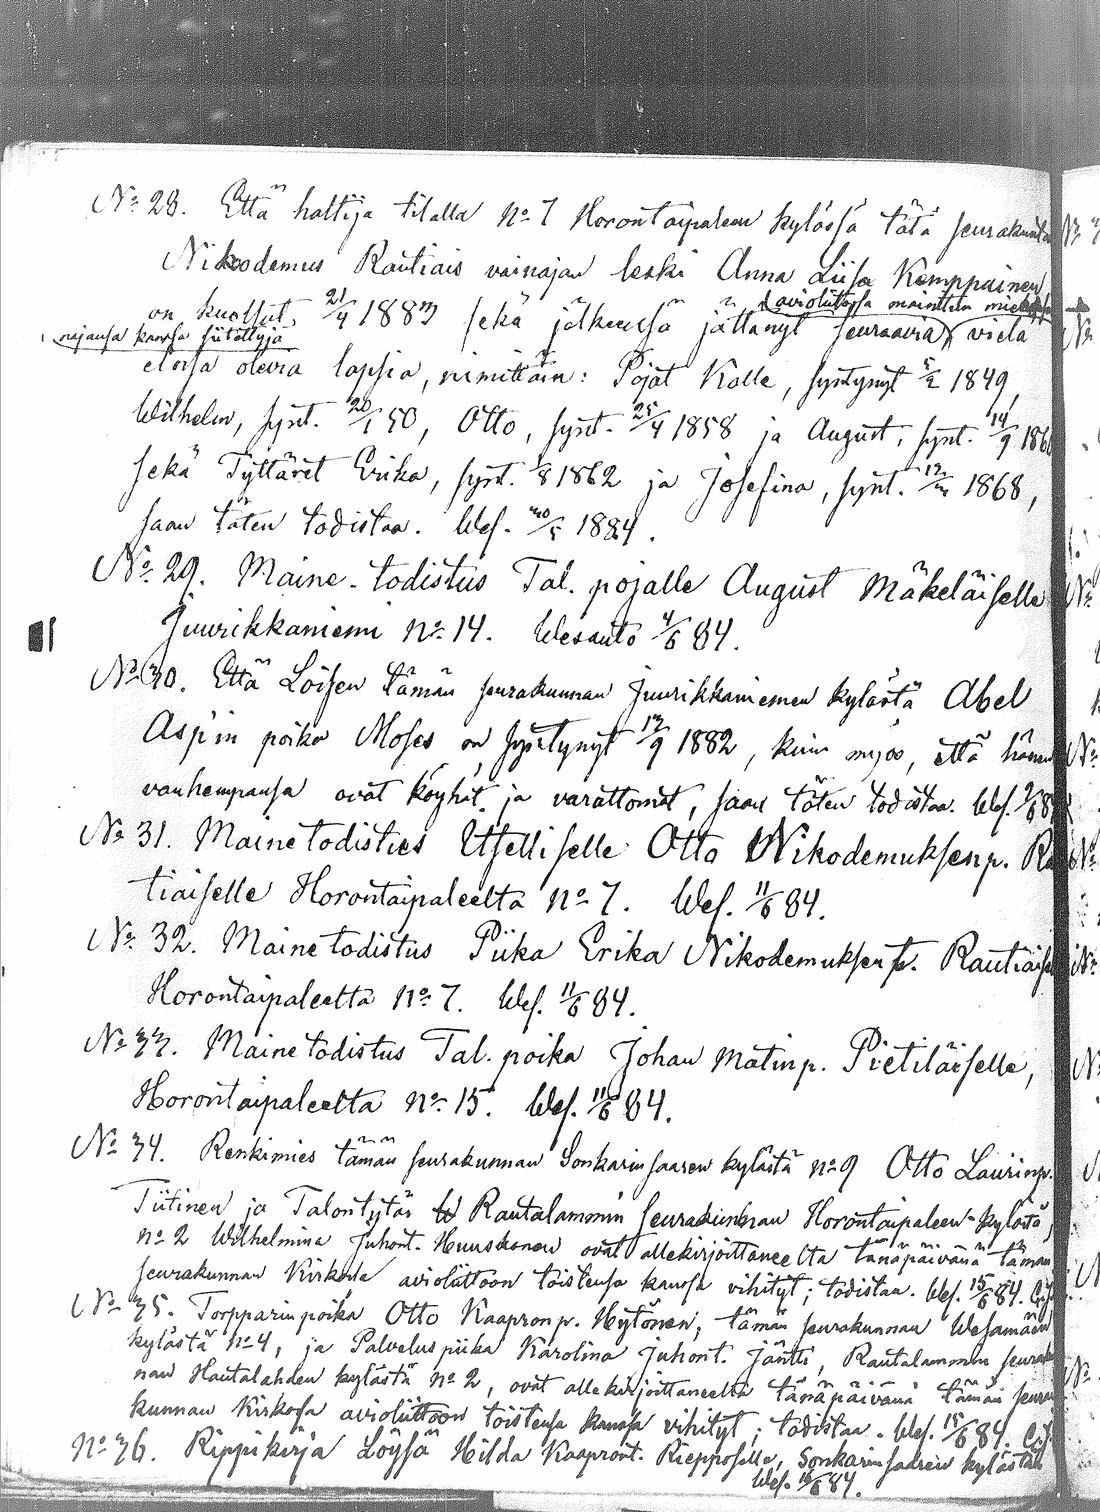 No 28. Että haltija tilalla no 7 Horontaipaleen kylässä tätä seurakunta
Nikodemus Rautiais vainajan leski Anna Liisa Kemppainen
on kuollut 21/4 1883 sekä jälkeensä jättänyt seuraavia vielä
avioliitossa mainitun miehe
vajansa kanssa siitettyjä
elossa olevia lapsia, nimittäin: Pojat Kalle, syntynyt 5/2 1849,
Wilhelm, synt. 20/1 50, Otto, synt. 25/4 1858 ja August, synt. 14/9 186
sekä Tyttäret Erika, synt. 1/8 1862 ja Josefina, synt. 1868,
saan täten todistaa. Wes. 30/5 1884.
No 29. Maine-todistus Tal. pojalle August Mäkeläiselle
Juurikkaniemi no 14. Wesanto 4/6 84.
No 30. Että Loisen tämän seurakunnan Juurikkaniemen kylästä Abel
Asp'in poika Moses on syntynyt 13/9 1882, kuin myös, että hänen
vanhempansa ovat köyhit ja varattomat, saan täten todistaa. Wes. 9/6 84
No 31. Mainetodistus Itselliselle Otto Nikodemuksenp. Rau
tiaiselle Horontaipaleelta no 7. Wes. 11/6 84.
No 32. Mainetodistus Piika Erika Nikodemuksent. Rautiaise
Horontaipaleelta no 7. Wes. 11/6 84.
No 33. Mainetodistus Tal. poika Johan Matinp. Pietiläiselle,
Horontaipaleelta no 15. Wes. 11/6 84.
No 34. Renkimies tämän seurakunnan Sonkarinsaaren kylästä no 9 Otto Laurinp.
Tiitinen ja Talontytär Rautalammin seurakunnan Horontaipaleen-kylästä,
no 2 Wilhelmina Juhont. Huuskonen ovat allekirjoittaneelta tänäpäivänä tämän
seurakunnan Kirkossa avioliittoon toistensa kanssa vihityt; todistaa. Wes. 15/6 84.
No 35. Torpparinpoika Otto Kaapronp. Hytönen, tämän seurakunnan Wesamäen
kylästä no 4, ja Palveluspiika Karolina Juhont. Jäntti, Rautalammin seurak
nan Hautalahden kylästä no 2, ovat allekirjoittaneelta tänäpäivänä tämän seura
kunnan Kirkossa avioliittoon toistensa kanssa vihityt; todistaa. Wes. 15/6 84.
No 36. Rippikirja Löysä Hilda Kaapront. Riepposelle, Sonkarinsaaren kylästä
Wes. 84.